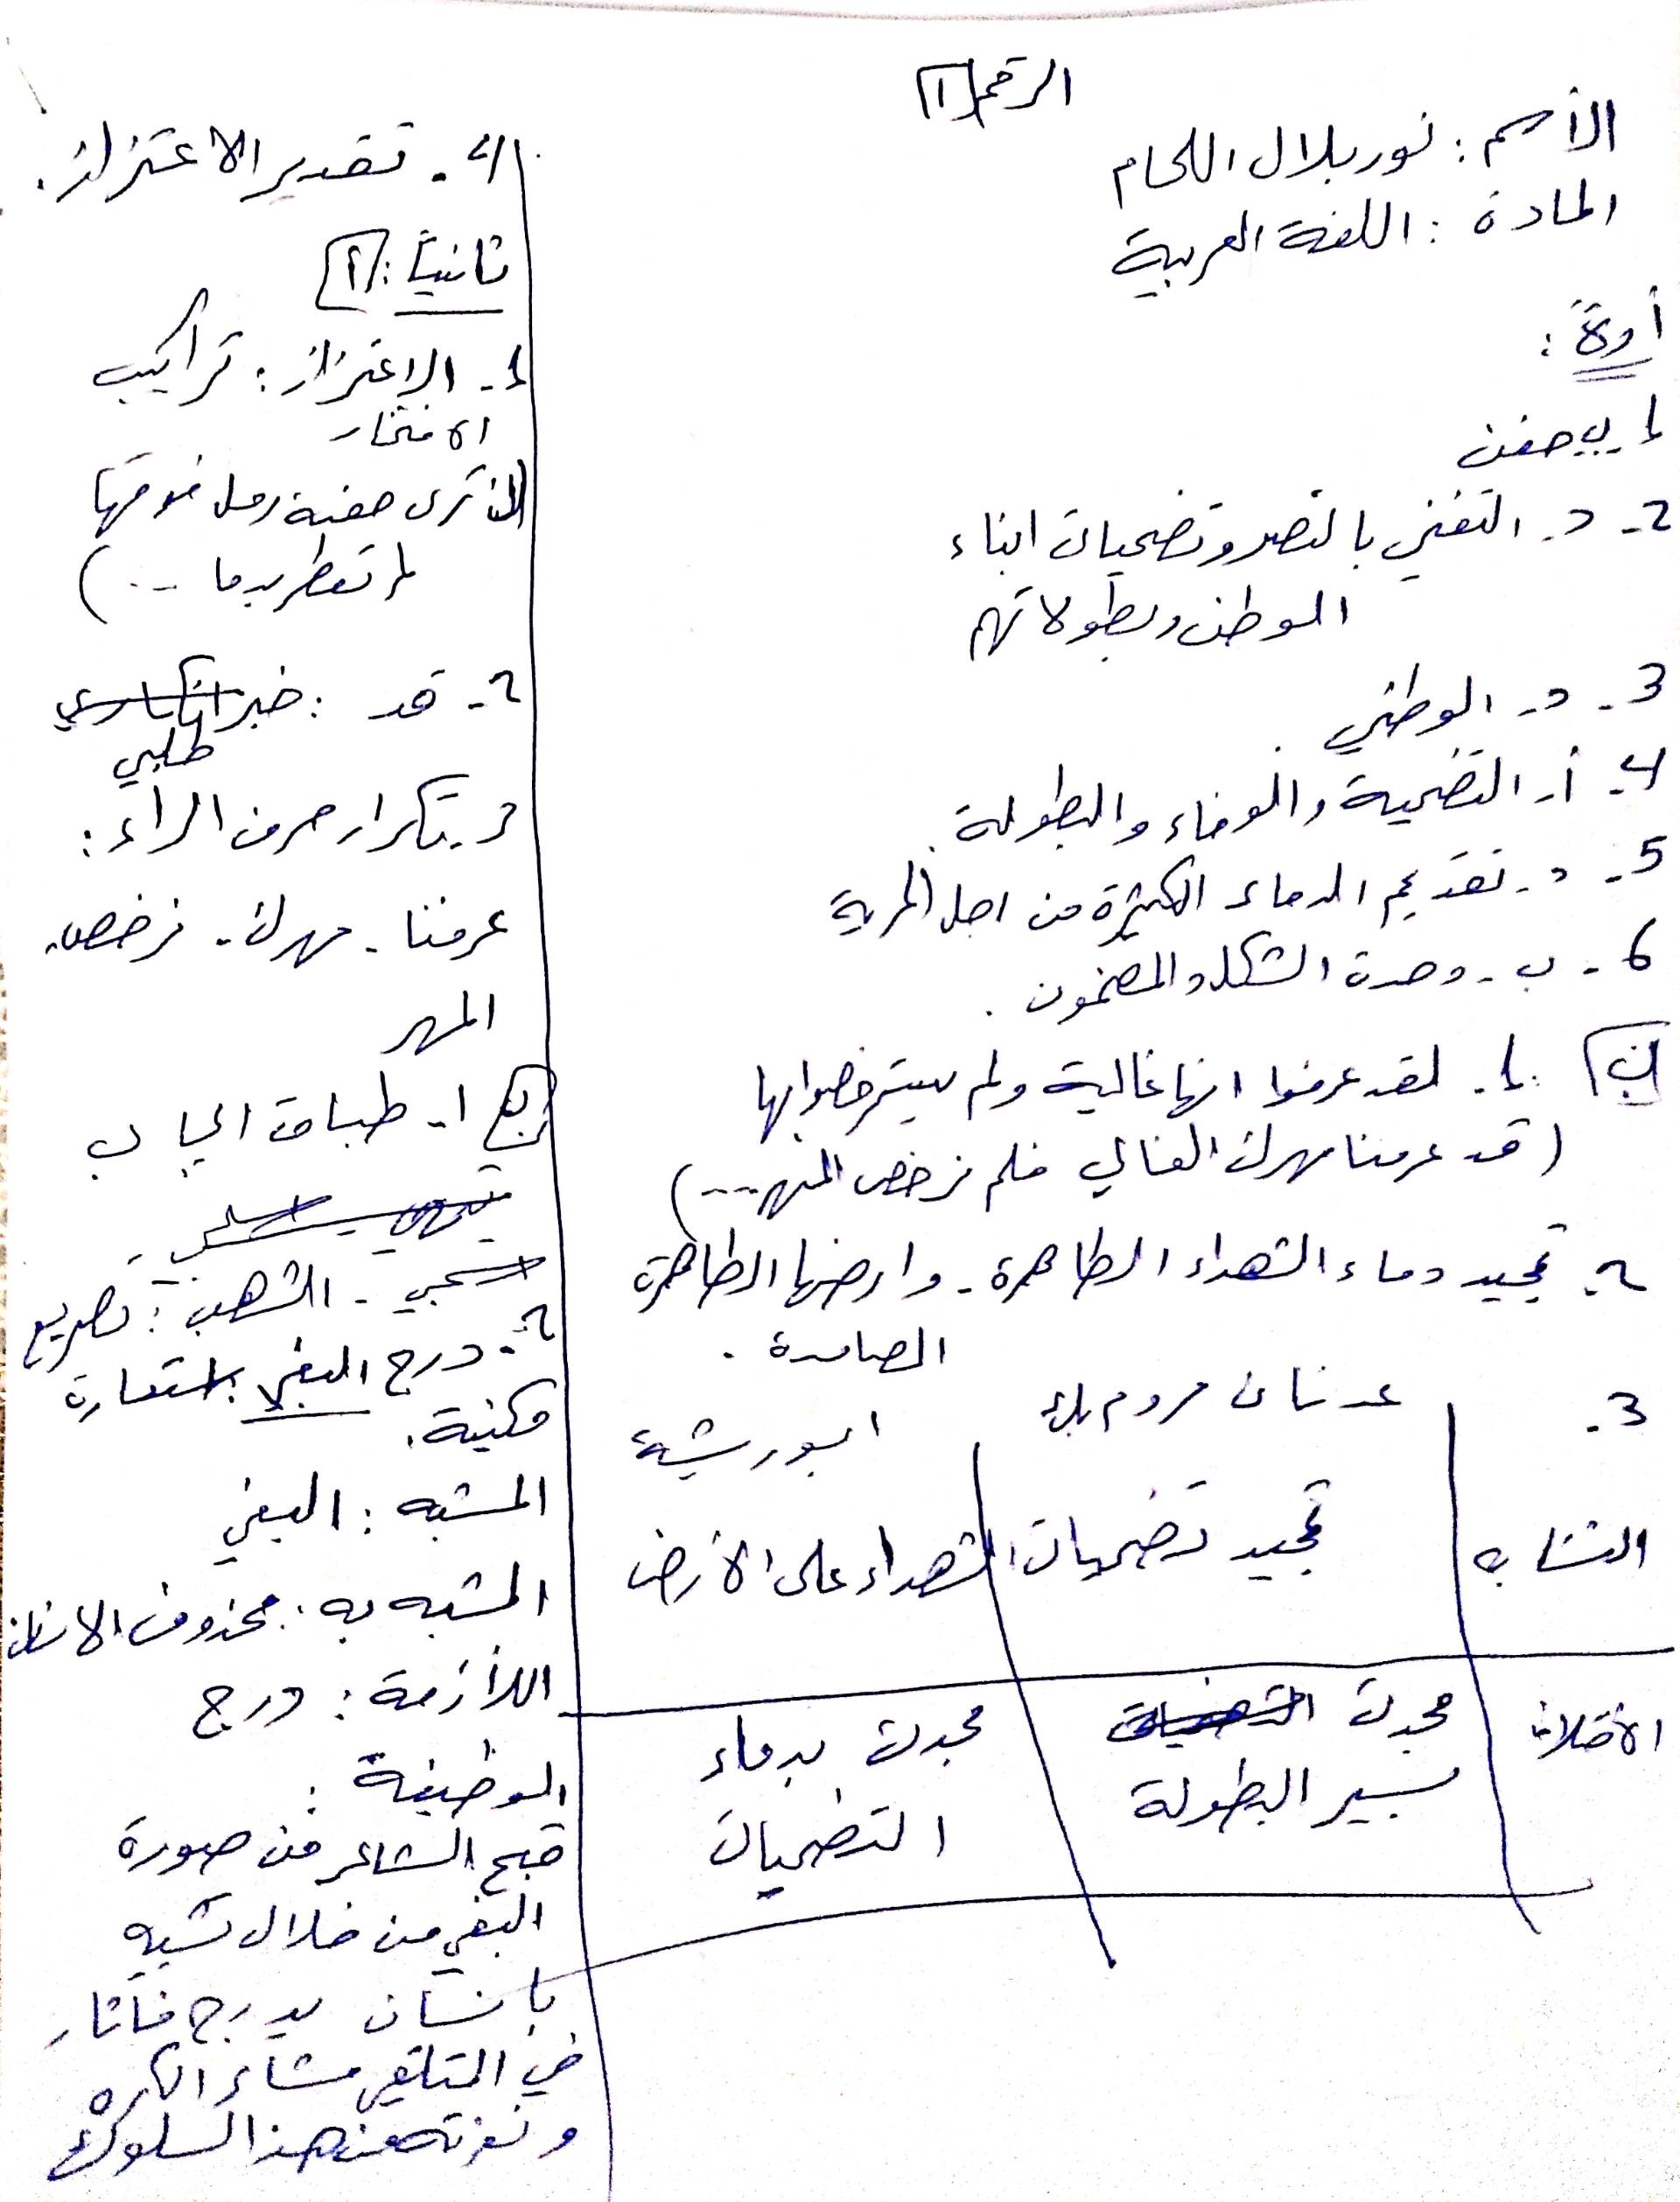 الرقم ١
الأسم : نور بلال اللحام
المادة : اللغة العربية
أولاً :
1 ب. جفن
2- د. التغني بالنصر وتضحيات ابناء
الوطن وبطولاتهم
3- د- الوطني
4- أ- التضحية والوفاء والبطولة.
5- د- تقديم الدماء الكثيرة من اجل الحرية
6- ب- وحدة الشكل والمضمون.
ب) 1. لقد عرفوا انها غالية ولم يسترخصوابها
(قد عرفنا مهرك الغالي فلم نرخص المهر....)
2. تمجيد دماء الشهداء الطاهرة- وارضها الطاهرة
الصامدة.
3- عدنان مردم بك ابو ريشة
التشابه تمجيد تضحيات الشهداء على الأرض
الاختلاف مجدت بسير البطولة مجدت بدماء التضحيات
4- تقدير الاعتزاز.
ثانياً : أ
1- الاعتزاز : تراكيب
الافتخار
(لن ترى حفنة رمل فوقها
لم تعطر بدما ...)
2- قد : خبر انكاري
طلبي
3. تكرار حرف الراء :
عرفنا- مهرك- نرخص.
المهر
ب 1- طباق ايجاب
سحبي - الشهب : تصريع
2- درج البغي استعارة
مكنية.
المشبه : البغي
المشبه به : محذوف الانسان
اللازمة : درج
الوظيفة :
قبح الشاعر من صورة
البغي من خلال تشبيه
بانسان يدرج فاثار
في المتلقي مشاعر الكره
ونفرته من هذا السلوك